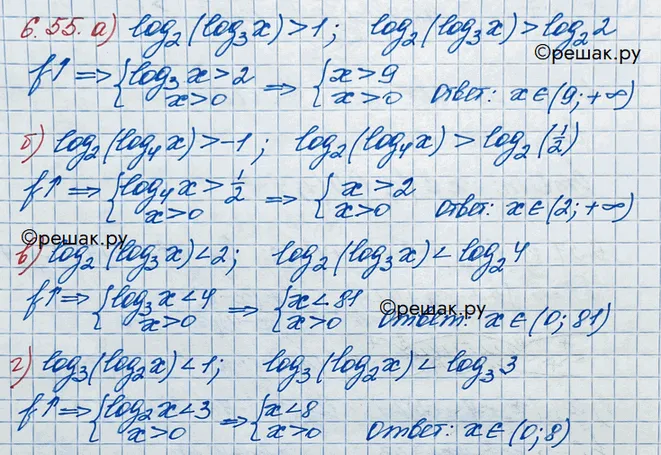 6.55. а) log₂(log₃x)>1; log₂(log₃x)>log₂2
©решак.ру
f↑ ⇒ {log₃x>2 x>0 ⇒ {x>9 x>0 ответ: x∈(9;+∞)
б) log₂(log₄x)>-1; log₂(log₄x)>log₂(1/2)
f↑ ⇒ {log₄x>1/2 x>0 ⇒ {x>2 x>0 ответ: x∈(2;+∞)
©решак.ру
в) log₂(log₃x)<2; log₂(log₃x)<log₂4
f↑ ⇒ {log₃x<4 x>0 ⇒ {x<81 x>0 ответ: x∈(0;81)
©решак.ру
г) log₃(log₂x)<1; log₃(log₂x)<log₃3
f↑ ⇒ {log₂x<3 x>0 ⇒ {x<8 x>0 ответ: x∈(0;8)